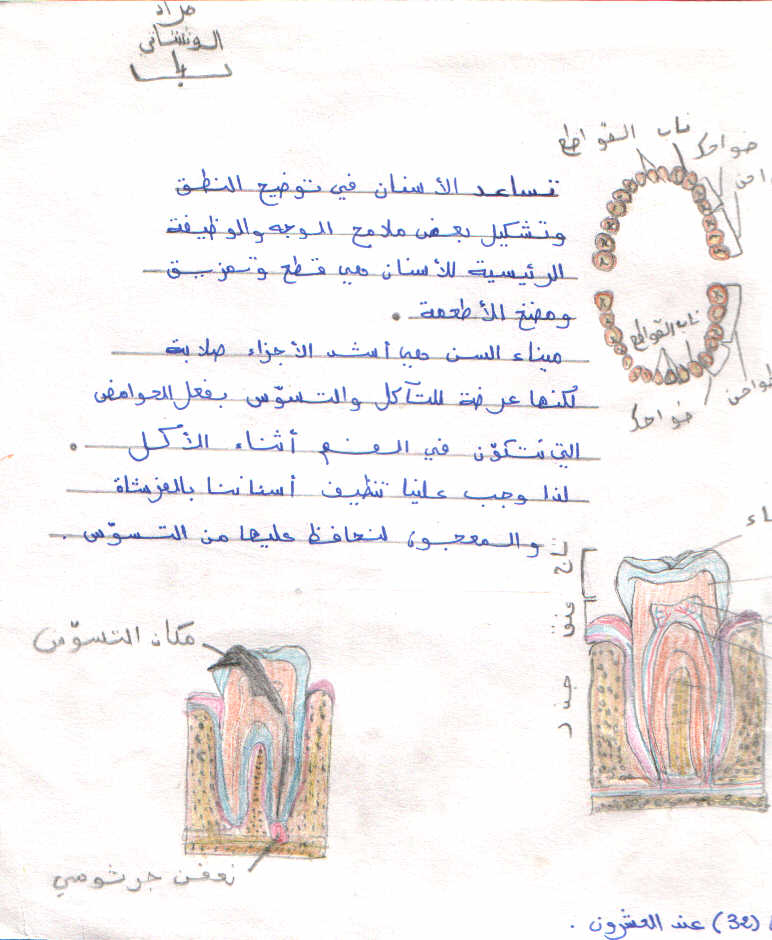 مراد
الونشاني
ناب القواطع
ضواحك
تساعد الأسنان في توضيح النطق
وتشكيل بعض ملامح الوجه والوظيفة
الرئيسية للأسنان هي قطع وتمزيق
ومضغ الأطعمة .
ميناء السن هي أشد الأجزاء صلابة
لكنها عرضة للتآكل والتسوّس بفعل الحوامض
التي تتكوّن في الفم أثناء الأكل .
لذا وجب علينا تنظيف أسناننا بالفرشاة
والمعجون لنحافظ عليها من التسوّس .
ناب القواطع
ضواحك
تاج
عنق
جذر
مكان التسوّس
تعفن جرثومي
(32) عند العشرون .